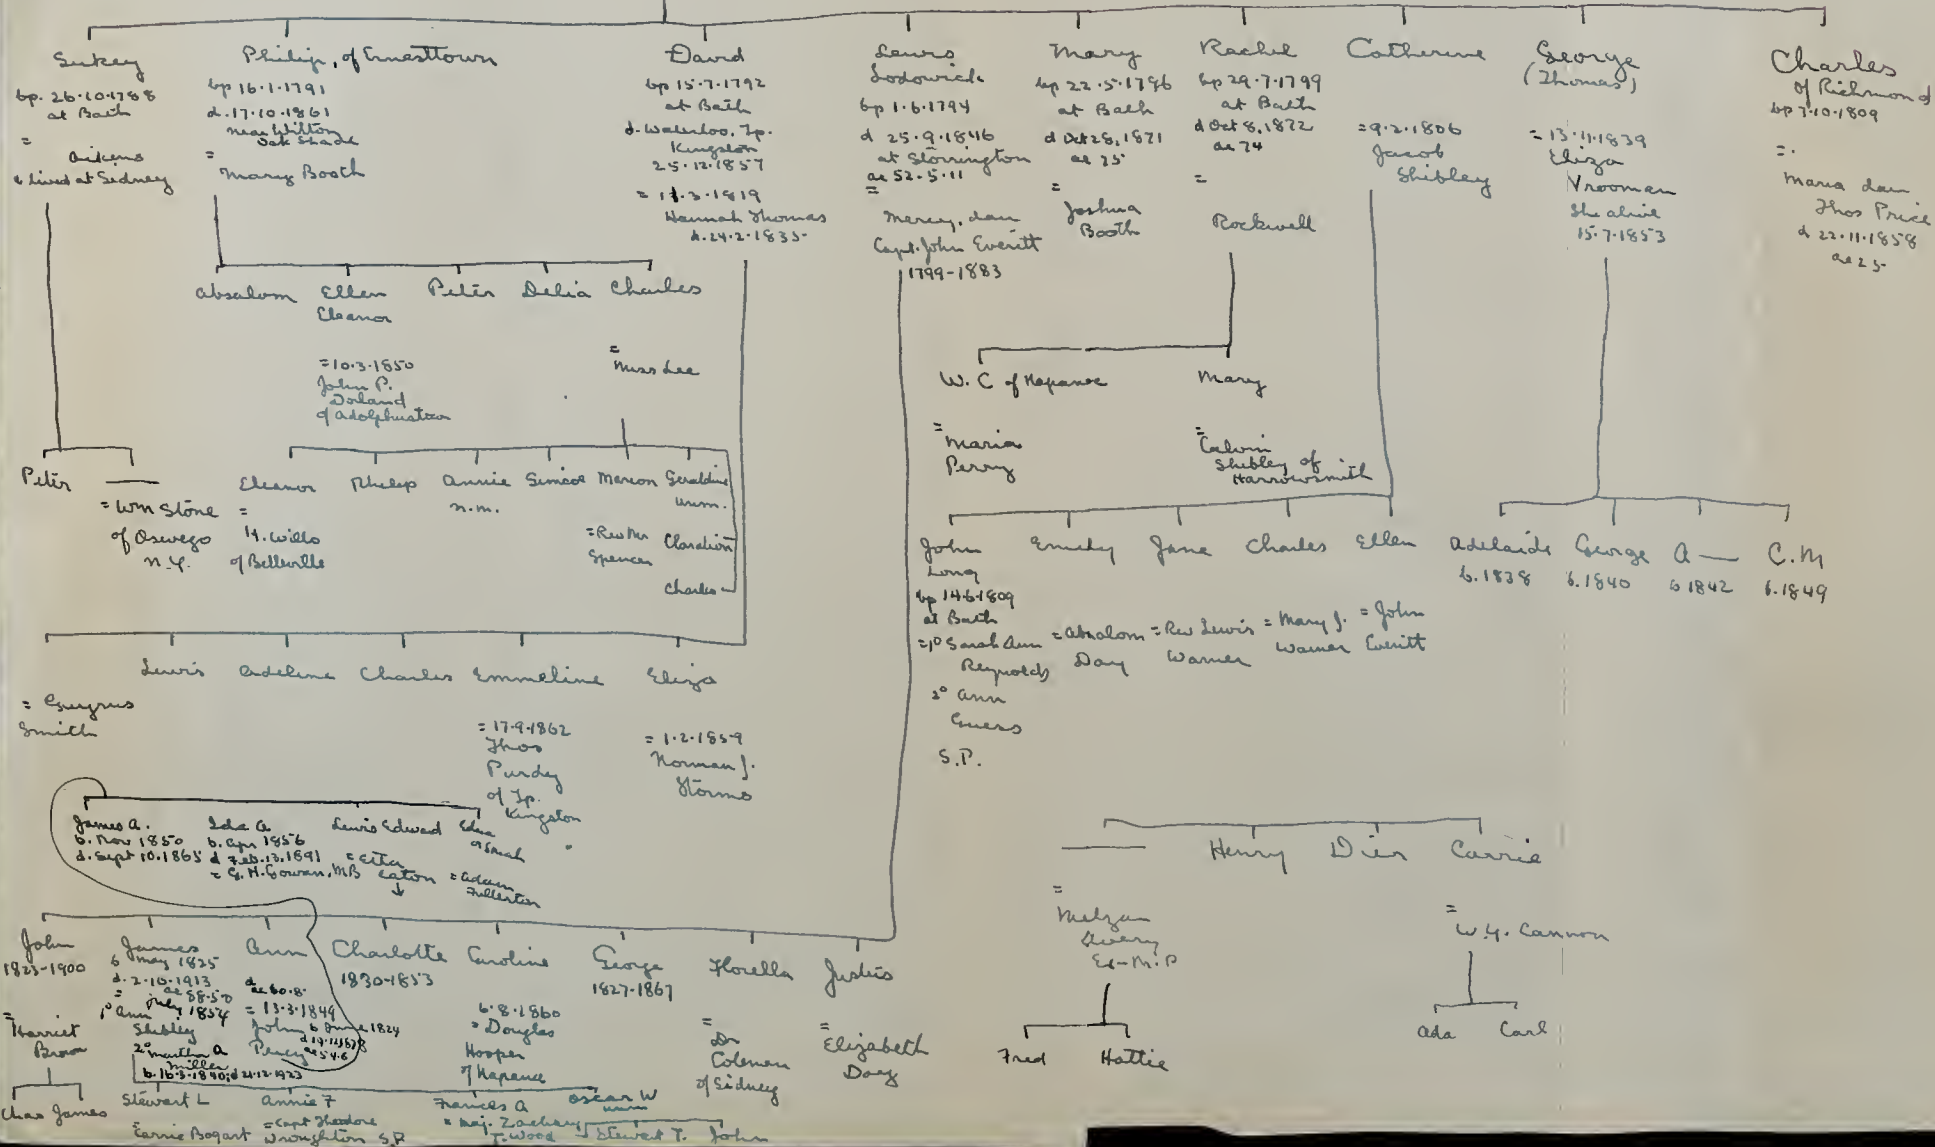 Sukey
bp. 26.10.1788
at Bath
=
Aikens
& lived at Sidney
Philip, of Ernesttown
bp 16.1.1791
d. 17.10.1861
near Wilton
Oak Shade
=
Mary Booth
David
bp 15.7.1792
at Bath
d. Waterloo, Tp.
Kingston
25.12.1857
= 11.3.1819
Hannah Thomas
d. 24.2.1835
Lewis
Lodowick
bp 1.6.1794
d 25.9.1846
at Storrington
ae 52.5.11
=
Mercy, dau
Capt. John Everitt
1799-1883
Mary
bp 22.5.1796
at Bath
d Oct 28, 1871
ae 75
=
Joshua
Booth
Rachel
bp 29.7.1799
at Bath
d Oct 8, 1872
ae 74
=
Rockwell
Catherine
= 9.2.1806
Jacob
Shibley
George
(Thomas)
= 13.11.1839
Eliza
Vrooman
She alive
15.7.1853
Charles
of Richmond
bp 7.10.1809
=
Maria dau
Thos Price
d 22.11.1858
ae 25
Absalom Ellen Peter Delia Charles
Eleanor
= 10.3.1850
John P.
Dorland
of Adolphustown
=
Miss Lee
W. C of Napanee
=
Maria
Perry
Mary
=
Calvin
Shibley of
Harrowsmith
Peter
= Wm Stone
of Oswego
N.Y.
Eleanor Philip Annie Simcoe Marion Geraldine
=
H. Wills
of Belleville
n.m.
= Rev Mr
Spencer
unm.
Charles
John
Long
bp 14.6.1809
at Bath
= 1° Sarah Ann
Reynolds
2° Ann
Guess
S.P.
Jane Charles Ellen
= Absalom
Day
= Rev Lewis
Warner
= Mary J.
Warner
= John
Everitt
Adelaide George A— C.M
b. 1838 b. 1840 b 1842 b. 1849
Lewis Adeline Charles Emmeline Eliza
=
Smith
= 17.9.1862
Thos
Purdy
of Tp.
Kingston
= 1.2.1859
Norman J.
Storms
James A.
b. Nov 1850
d. Sept 10.1865
Ida A
b. Apr 1856
d Feb. 13, 1891
= G. H. Gowan, MB
Lewis Edward
= Etta
Eaton
↓
Edna
= Adam
Fullerton
Henry Carrie
=
Avery
Ex-M.P
=
W.Y. Cannon
Fred Hattie
Ada Carl
John
1823-1900
=
Harriet
Brown
James
b May 1825
d. 2.10.1913
ae 88.5.0
= July 1854
1° Ann
Shibley
2° Martha A
Miller
b. 16.3.1840; d 21.12.1923
Ann
d
ae 60.8
= 13.3.1849
John b June 1824
Percy ae 54.6
Charlotte
1830-1853
Caroline
6.8.1860
= Douglas
Hooper
of Napanee
George
1827-1867
Florella
=
Dr
Coleman
of Sidney
Justus
=
Elizabeth
Day
Chas James
Stewart L
= Carrie Bogart
Annie F
= Capt Theodore
Wroughton S.P.
Frances A
= Maj. Zachary
T. Wood
Oscar W
unm
Stewart T. John